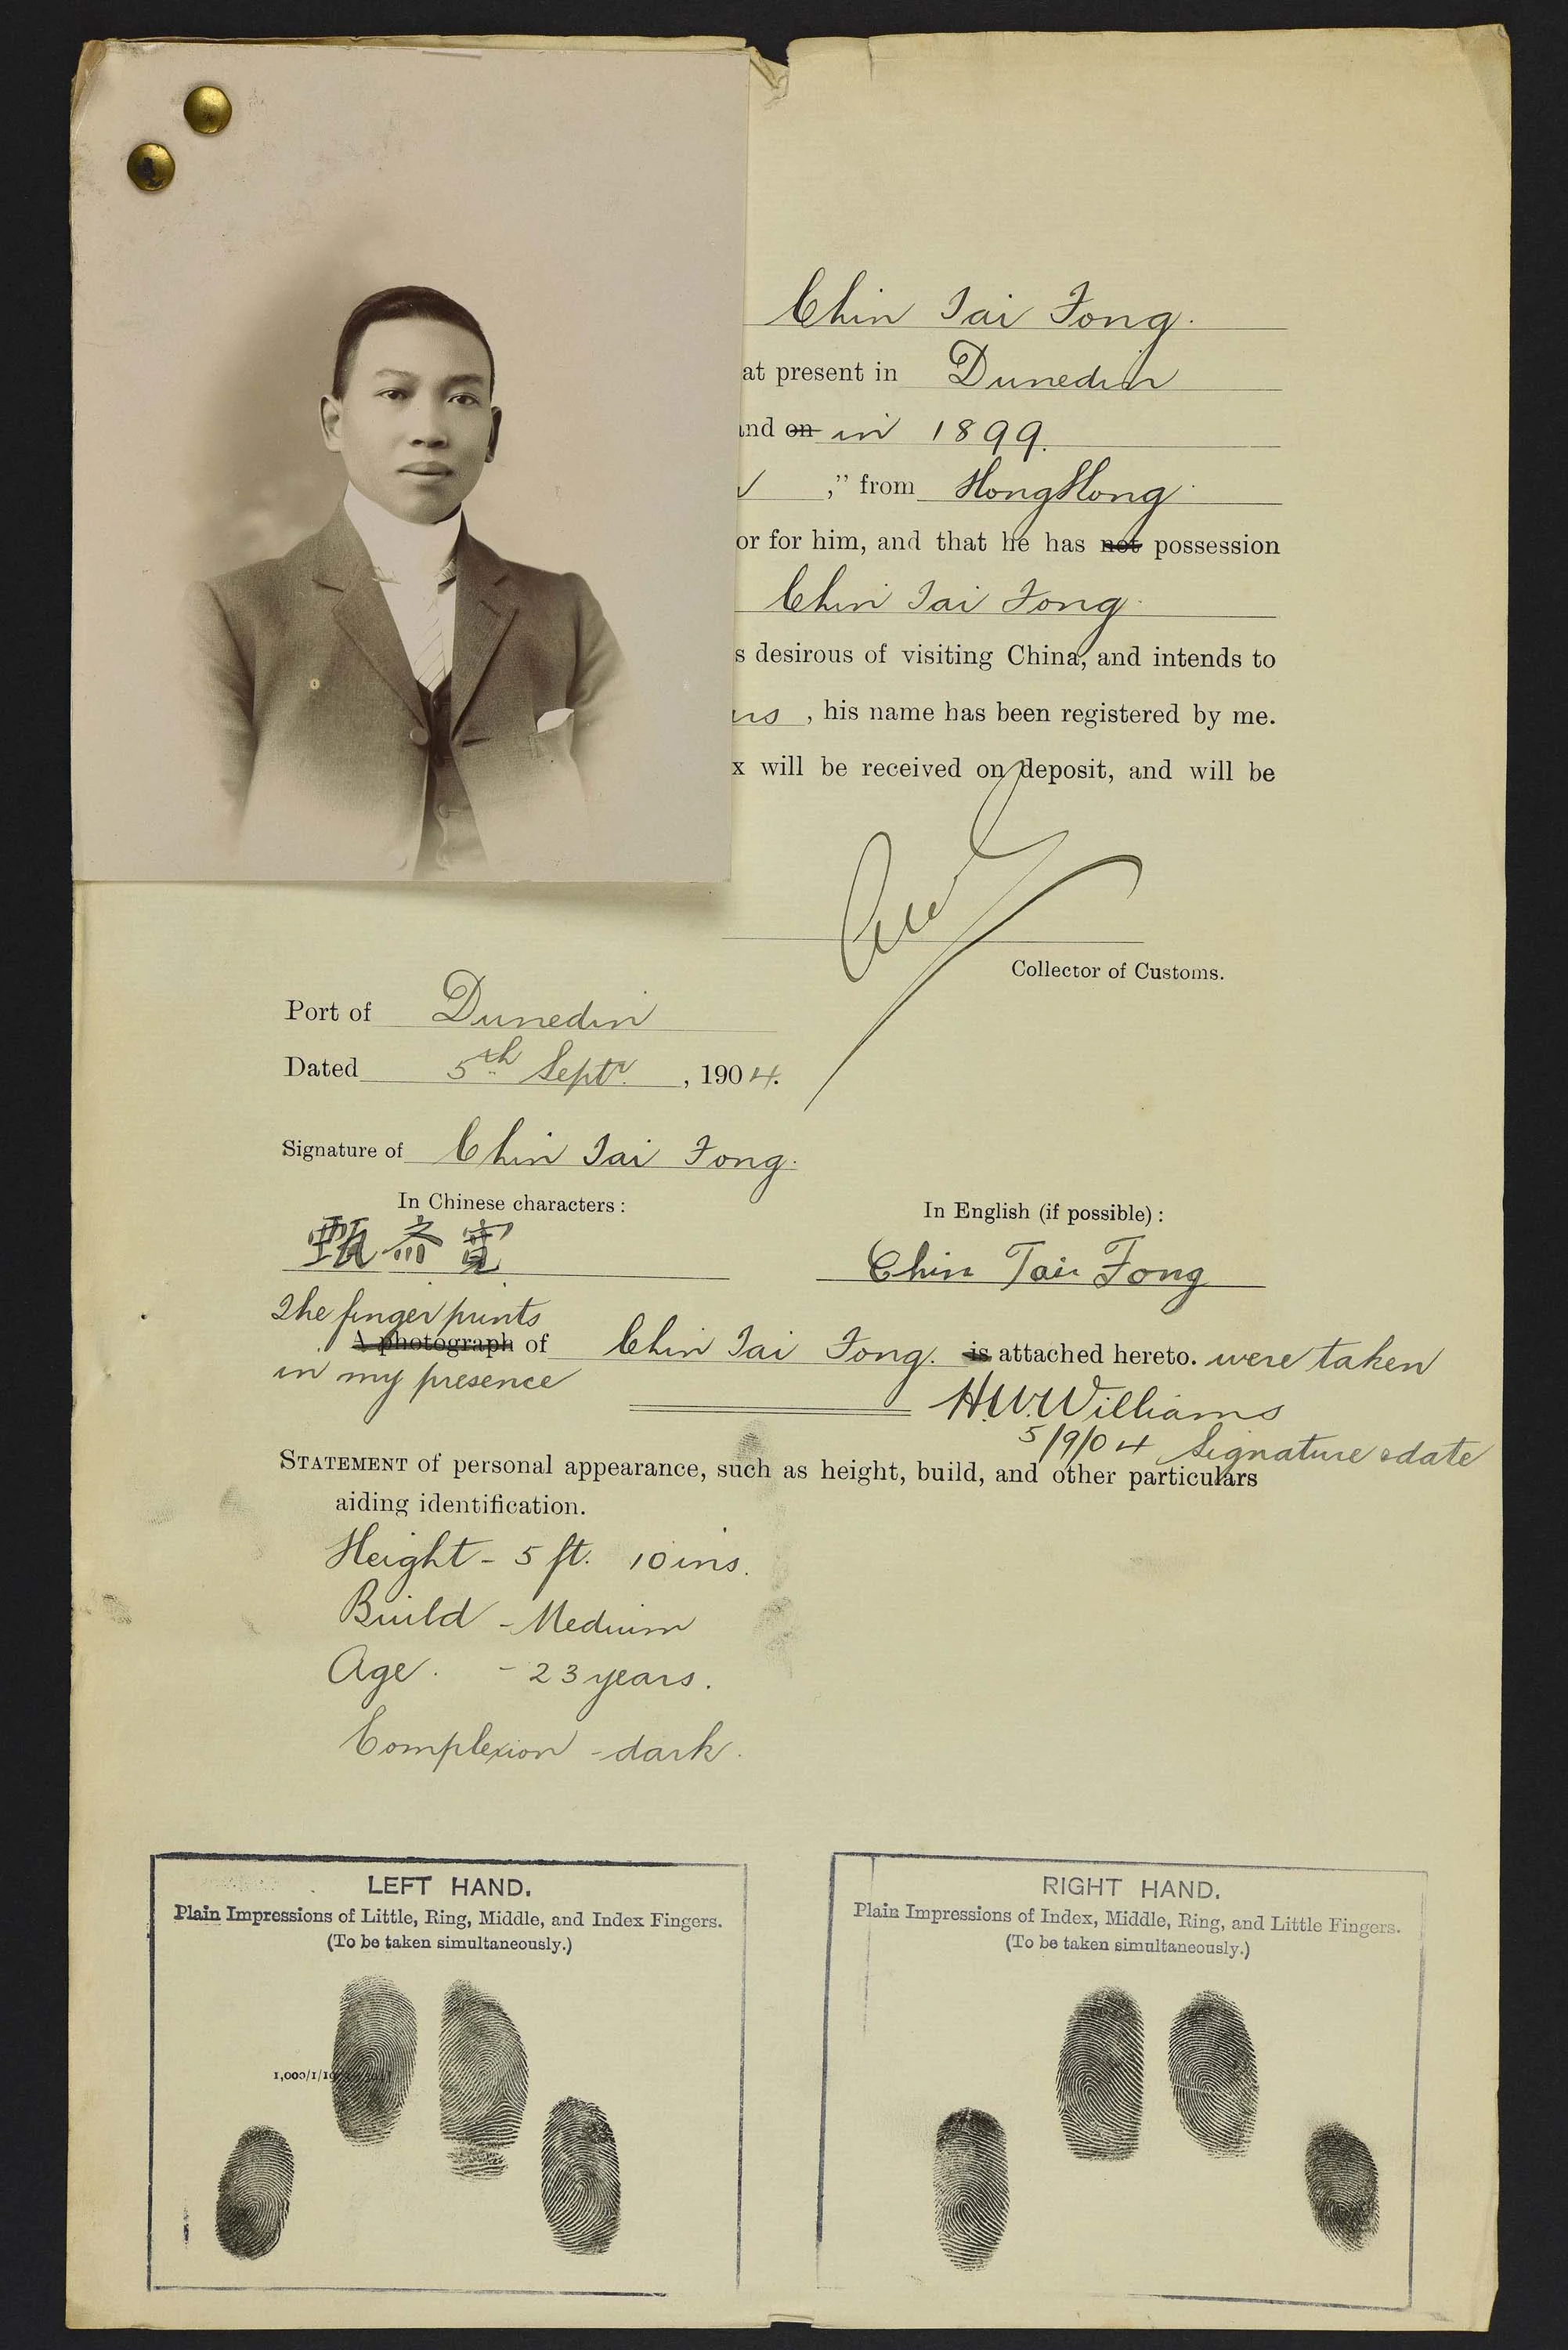 Chin Tai Fong.
at present in Dunedin
and on in 1899.
," from HongKong
or for him, and that he has not possession
Chin Tai Fong
s desirous of visiting China, and intends to
, his name has been registered by me.
x will be received on deposit, and will be
Collector of Customs.
Port of Dunedin
Dated 5th Septr. , 1904.
Signature of Chin Tai Fong.
In Chinese characters :
In English (if possible) :
甄
Chin Tai Fong
The finger prints
A photograph of Chin Tai Fong. is attached hereto. were taken
in my presence
H.W. Williams
5/9/04 Signature & date
STATEMENT of personal appearance, such as height, build, and other particulars
aiding identification.
Height - 5 ft. 10 ins.
Build - Medium
Age. - 23 years.
Complexion - dark.
LEFT HAND.
Plain Impressions of Little, Ring, Middle, and Index Fingers.
(To be taken simultaneously.)
1,000/1/19
RIGHT HAND.
Plain Impressions of Index, Middle, Ring, and Little Fingers.
(To be taken simultaneously.)